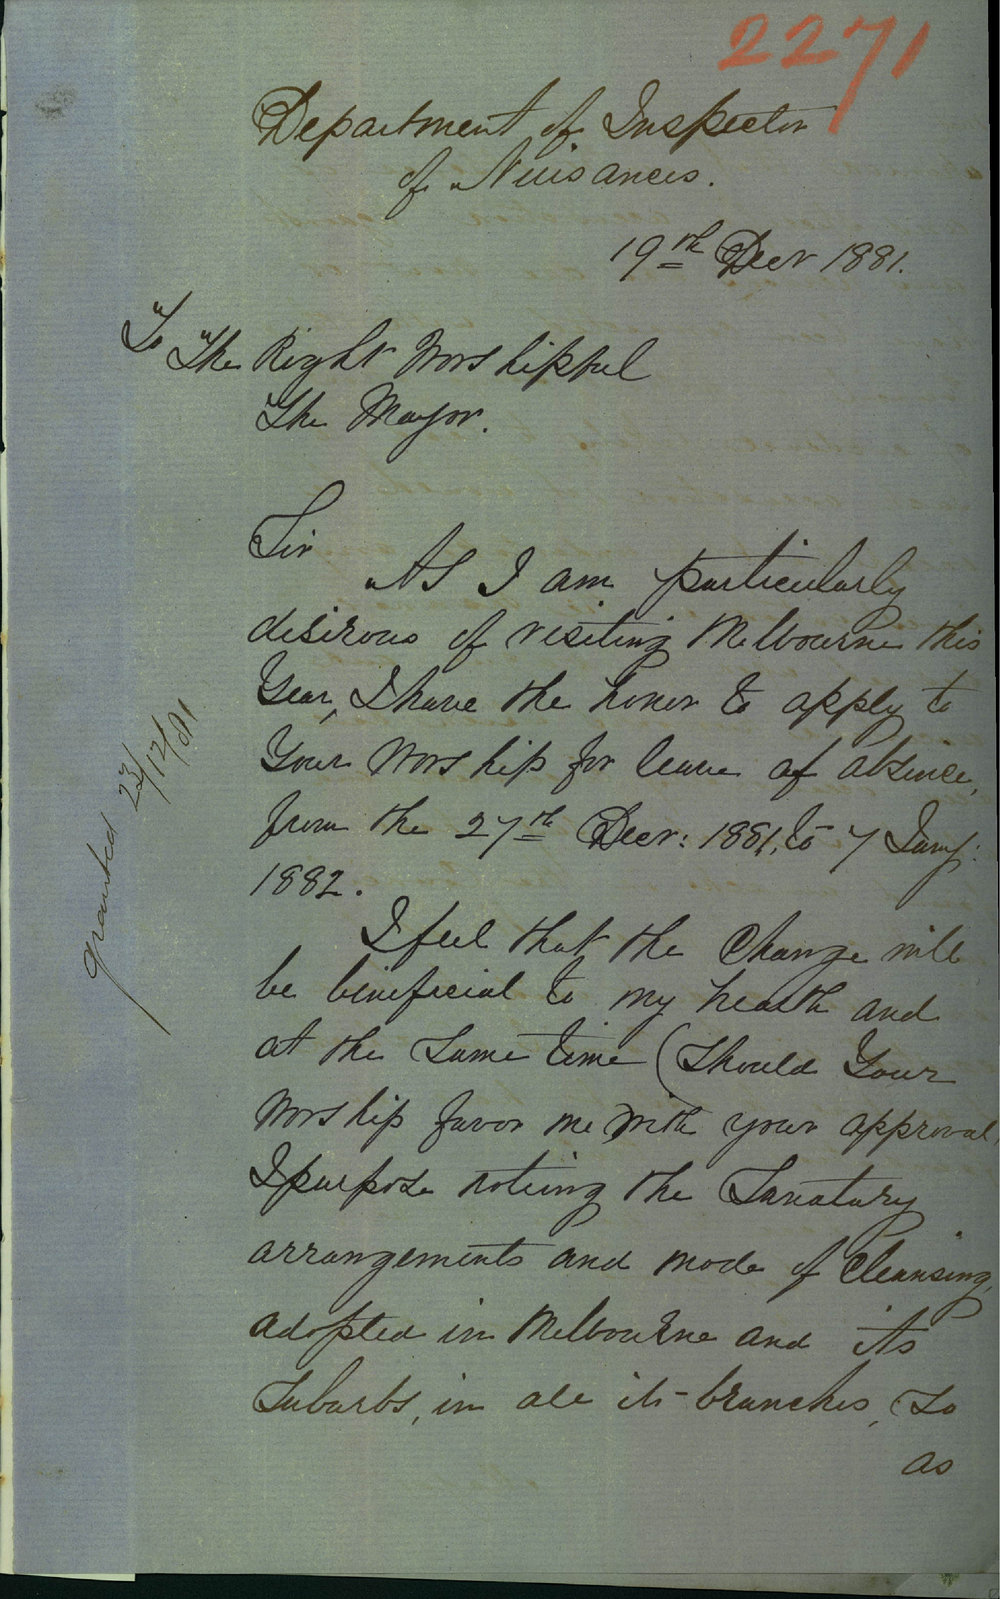 2271
Department of Inspector
of Nuisances.
19th Decr 1881.
To The Right Worshipful
The Mayor.
Sir
As I am particularly
desirous of visiting Melbourne this
Year, I have the honor to apply to
Your Worship for leave of absence,
from the 27th Decr: 1881, to 7 Jany:
1882.
I feel that the Change will
be beneficial to my health and
at the same time (Should Your
Worship favor me with your approval,
I purpose noticing the Sanatary
arrangements and mode of Cleansing,
adopted in Melbourne and its
Suburbs, in all its branches, So
as
granted 23/12/81